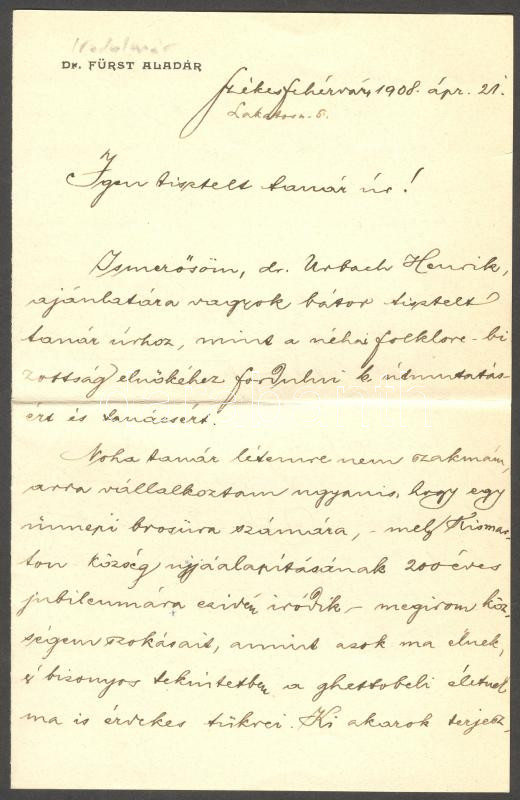 Irodalmár
Dr. FÜRST ALADÁR
Székesfehérvár, 1908. ápr. 21.
Lakatos u. 5.
Igen tisztelt tanár úr!
Ismerősöm, dr. Urbach Henrik,
ajánlatára vagyok bátor tisztelt
tanár úrhoz, mint a néhai folklore-bi
zottság elnökéhez fordulni k. útmutatás-
ért és tanácsért.
Noha tanár létemre nem szakmám,
arra vállalkoztam ugyanis, hogy egy
ünnepi brosüra számára, - mely Kismar-
ton község ujjáalapításának 200 éves
jubileumára ezidén iródik, - megirom köz-
ségem szokásait, amint azok ma élnek,
s bizonyos tekintetben a ghettobeli életnek
ma is érdekes tükrei. Ki akarok terjesz-